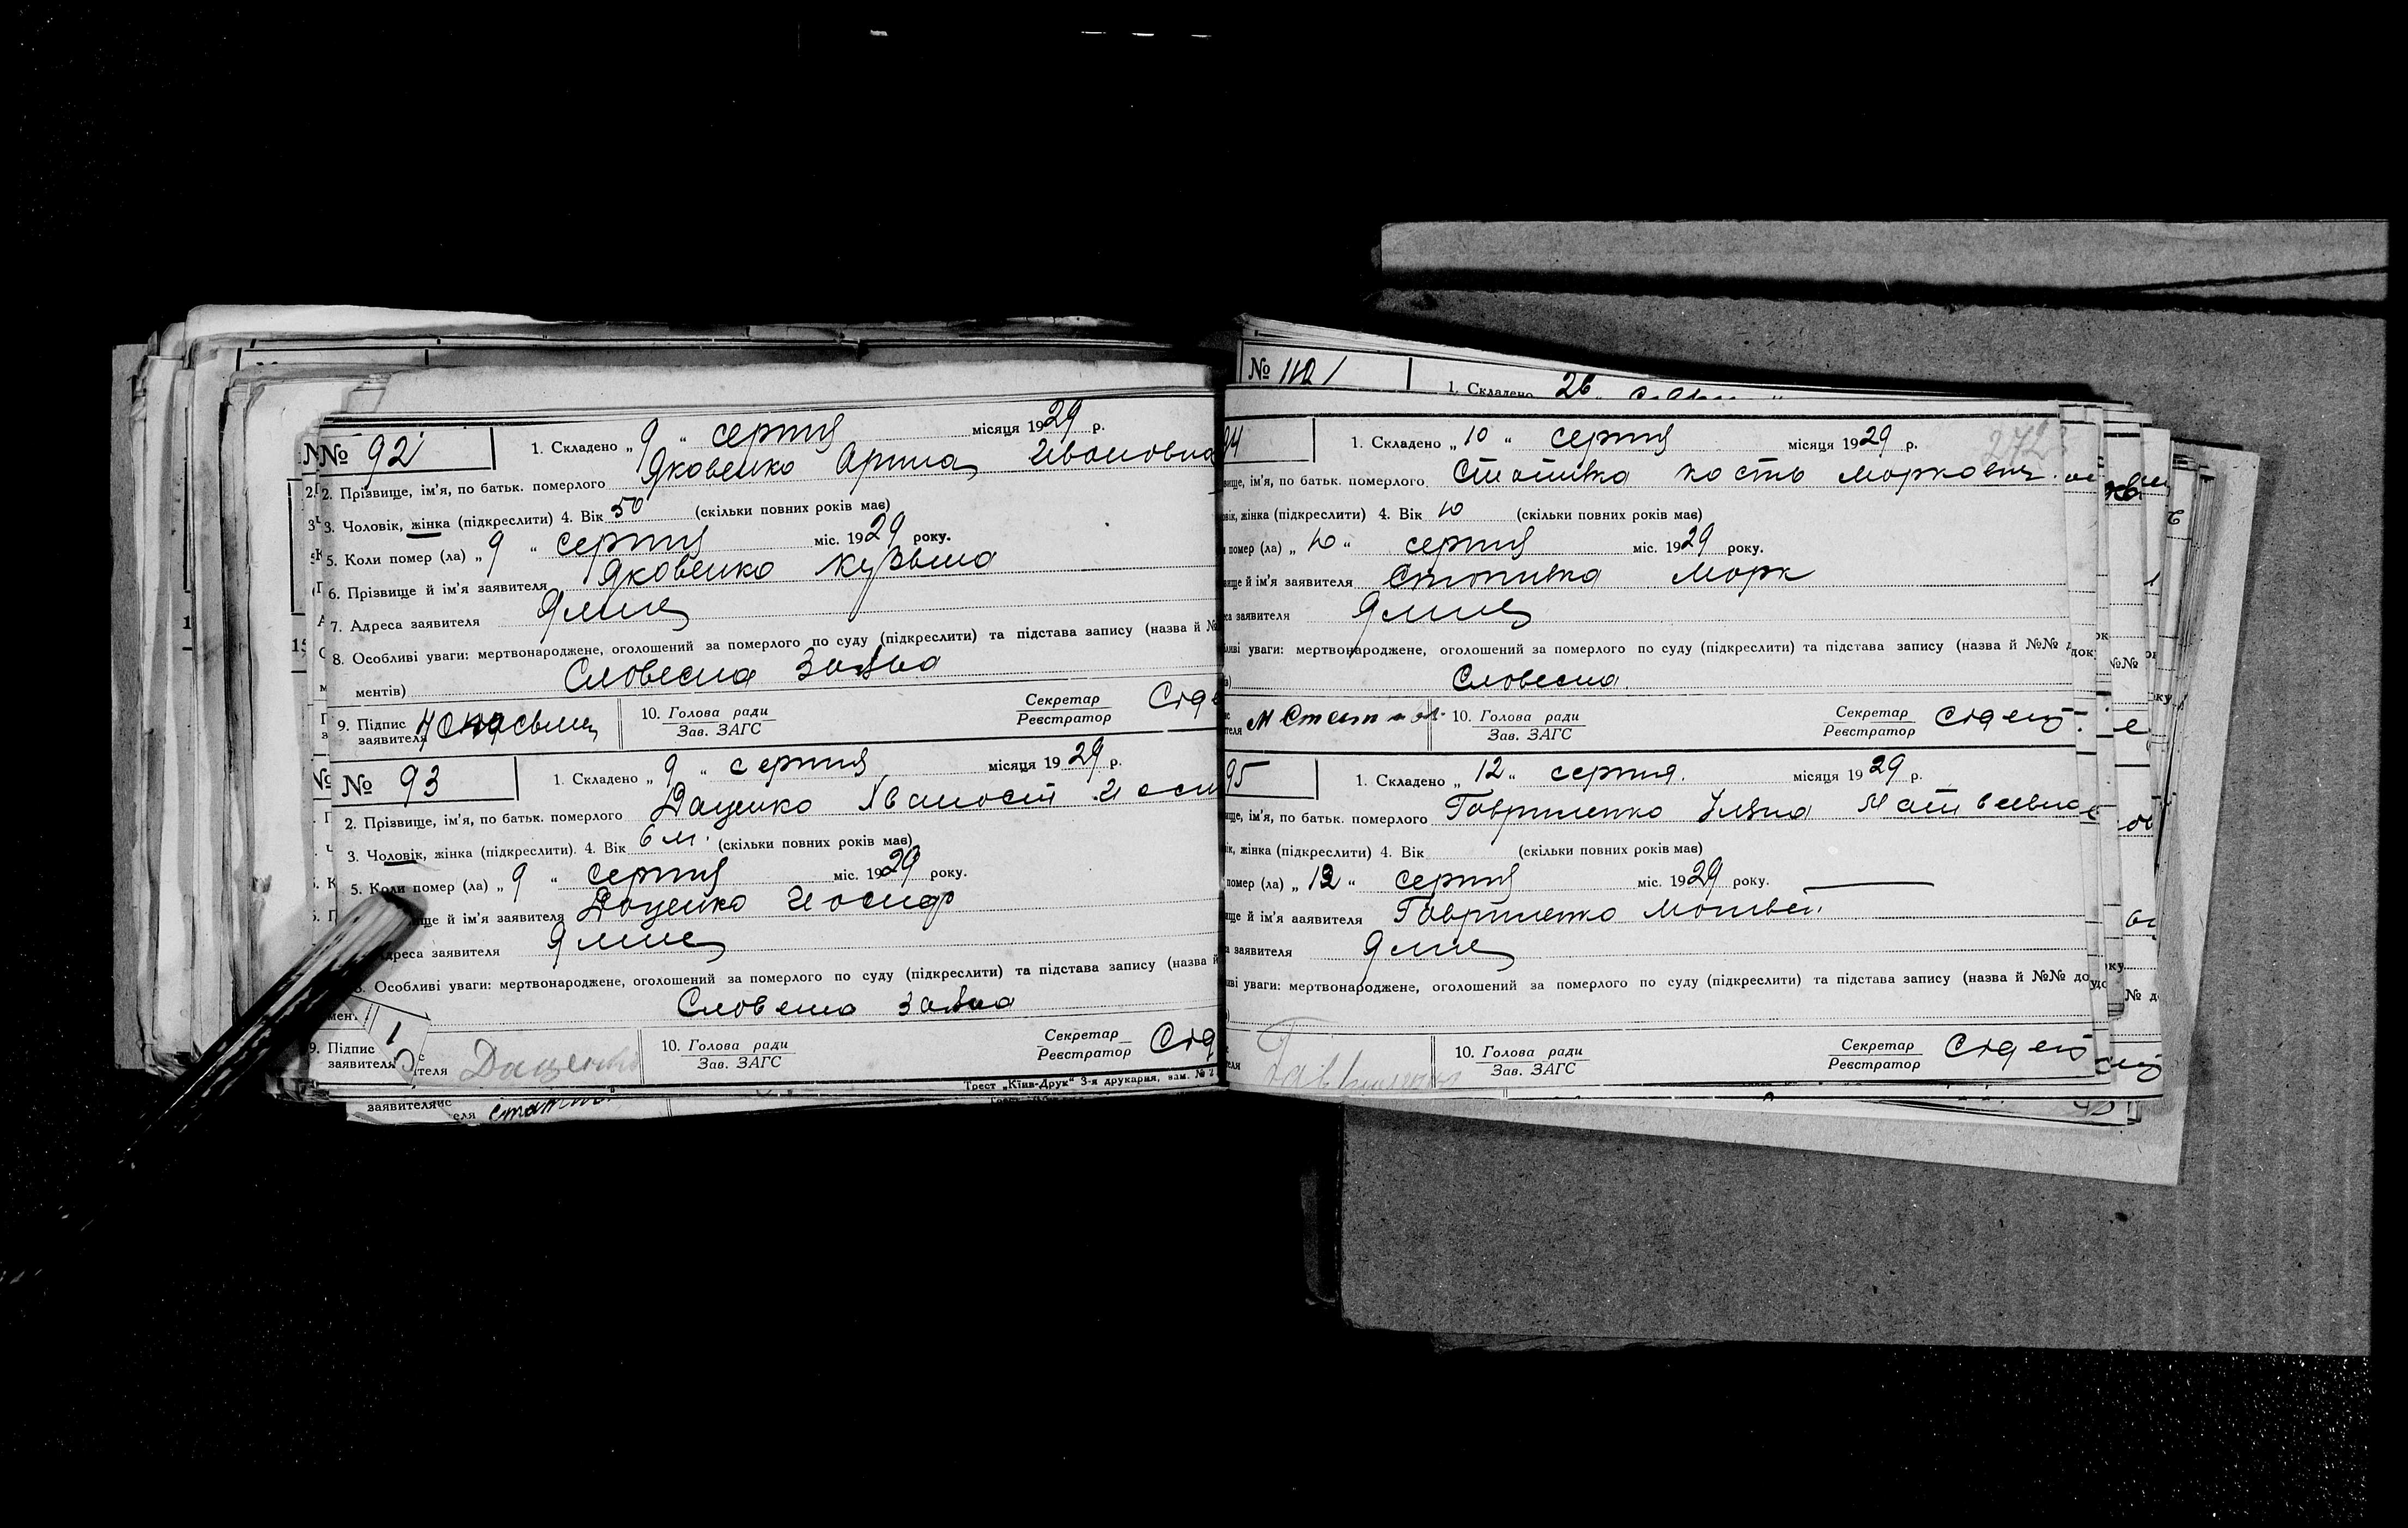 № 92 1. Складено „ 9 “ серпня місяця 1929 р.
2. Прізвище, ім'я, по батьк. померлого Яковенко Орина Ивановна
3. Чоловік, жінка (підкреслити) 4. Вік 50 (скільки повних років має)
5. Коли помер (ла) „ 9 “ серпня міс. 1929 року.
6. Прізвище й ім'я заявителя Яковенко Кузьма
7. Адреса заявителя Ялше
8. Особливі уваги: мертвонароджене, оголошений за померлого по суду (підкреслити) та підстава запису (назва й №
ментів) Словесна заява
9. Підпис заявителя 10. Голова ради Зав. ЗАГС Секретар Реєстратор
№ 93 1. Складено „ 9 “ серпня місяця 1929 р.
2. Прізвище, ім'я, по батьк. померлого Даценко Хваност Иосип
3. Чоловік, жінка (підкреслити). 4. Вік 6 м. (скільки повних років має)
5. Коли помер (ла) „ 9 “ серпня міс. 1929 року.
ще й ім'я заявителя Даценко Иосиф
дреса заявителя Ялше
8. Особливі уваги: мертвонароджене, оголошений за померлого по суду (підкреслити) та підстава запису (назва й
мен Словесна заява
9. Підпис заявителя Даценко 10. Голова ради Зав. ЗАГС Секретар Реєстратор
Трест „Київ-Друк“ 3-я друкарня, зам. № 2
1. Складено 26
94 1. Складено „ 10 “ серпня місяця 1929 р.
вище, ім'я, по батьк. померлого Стативка Кость Маркович
вік, жінка (підкреслити) 4. Вік 10 (скільки повних років має)
помер (ла) „ 10 “ серпня міс. 1929 року.
вище й ім'я заявителя Стативка Марк
са заявителя Ялше
ливі уваги: мертвонароджене, оголошений за померлого по суду (підкреслити) та підстава запису (назва й №№ док
Словесна
теля 10. Голова ради Зав. ЗАГС Секретар Реєстратор
95 1. Складено „ 12 “ серпня. місяця 1929 р.
вище, ім'я, по батьк. померлого Гавриленко Матвеевна
вік, жінка (підкреслити) 4. Вік (скільки повних років має)
помер (ла) „ 12 “ серпня міс. 1929 року.
вище й ім'я заявителя Гавриленко Матвей
са заявителя Ялше
ливі уваги: мертвонароджене, оголошений за померлого по суду (підкреслити) та підстава запису (назва й №№ до
теля Гавриленко 10. Голова ради Зав. ЗАГС Секретар Реєстратор